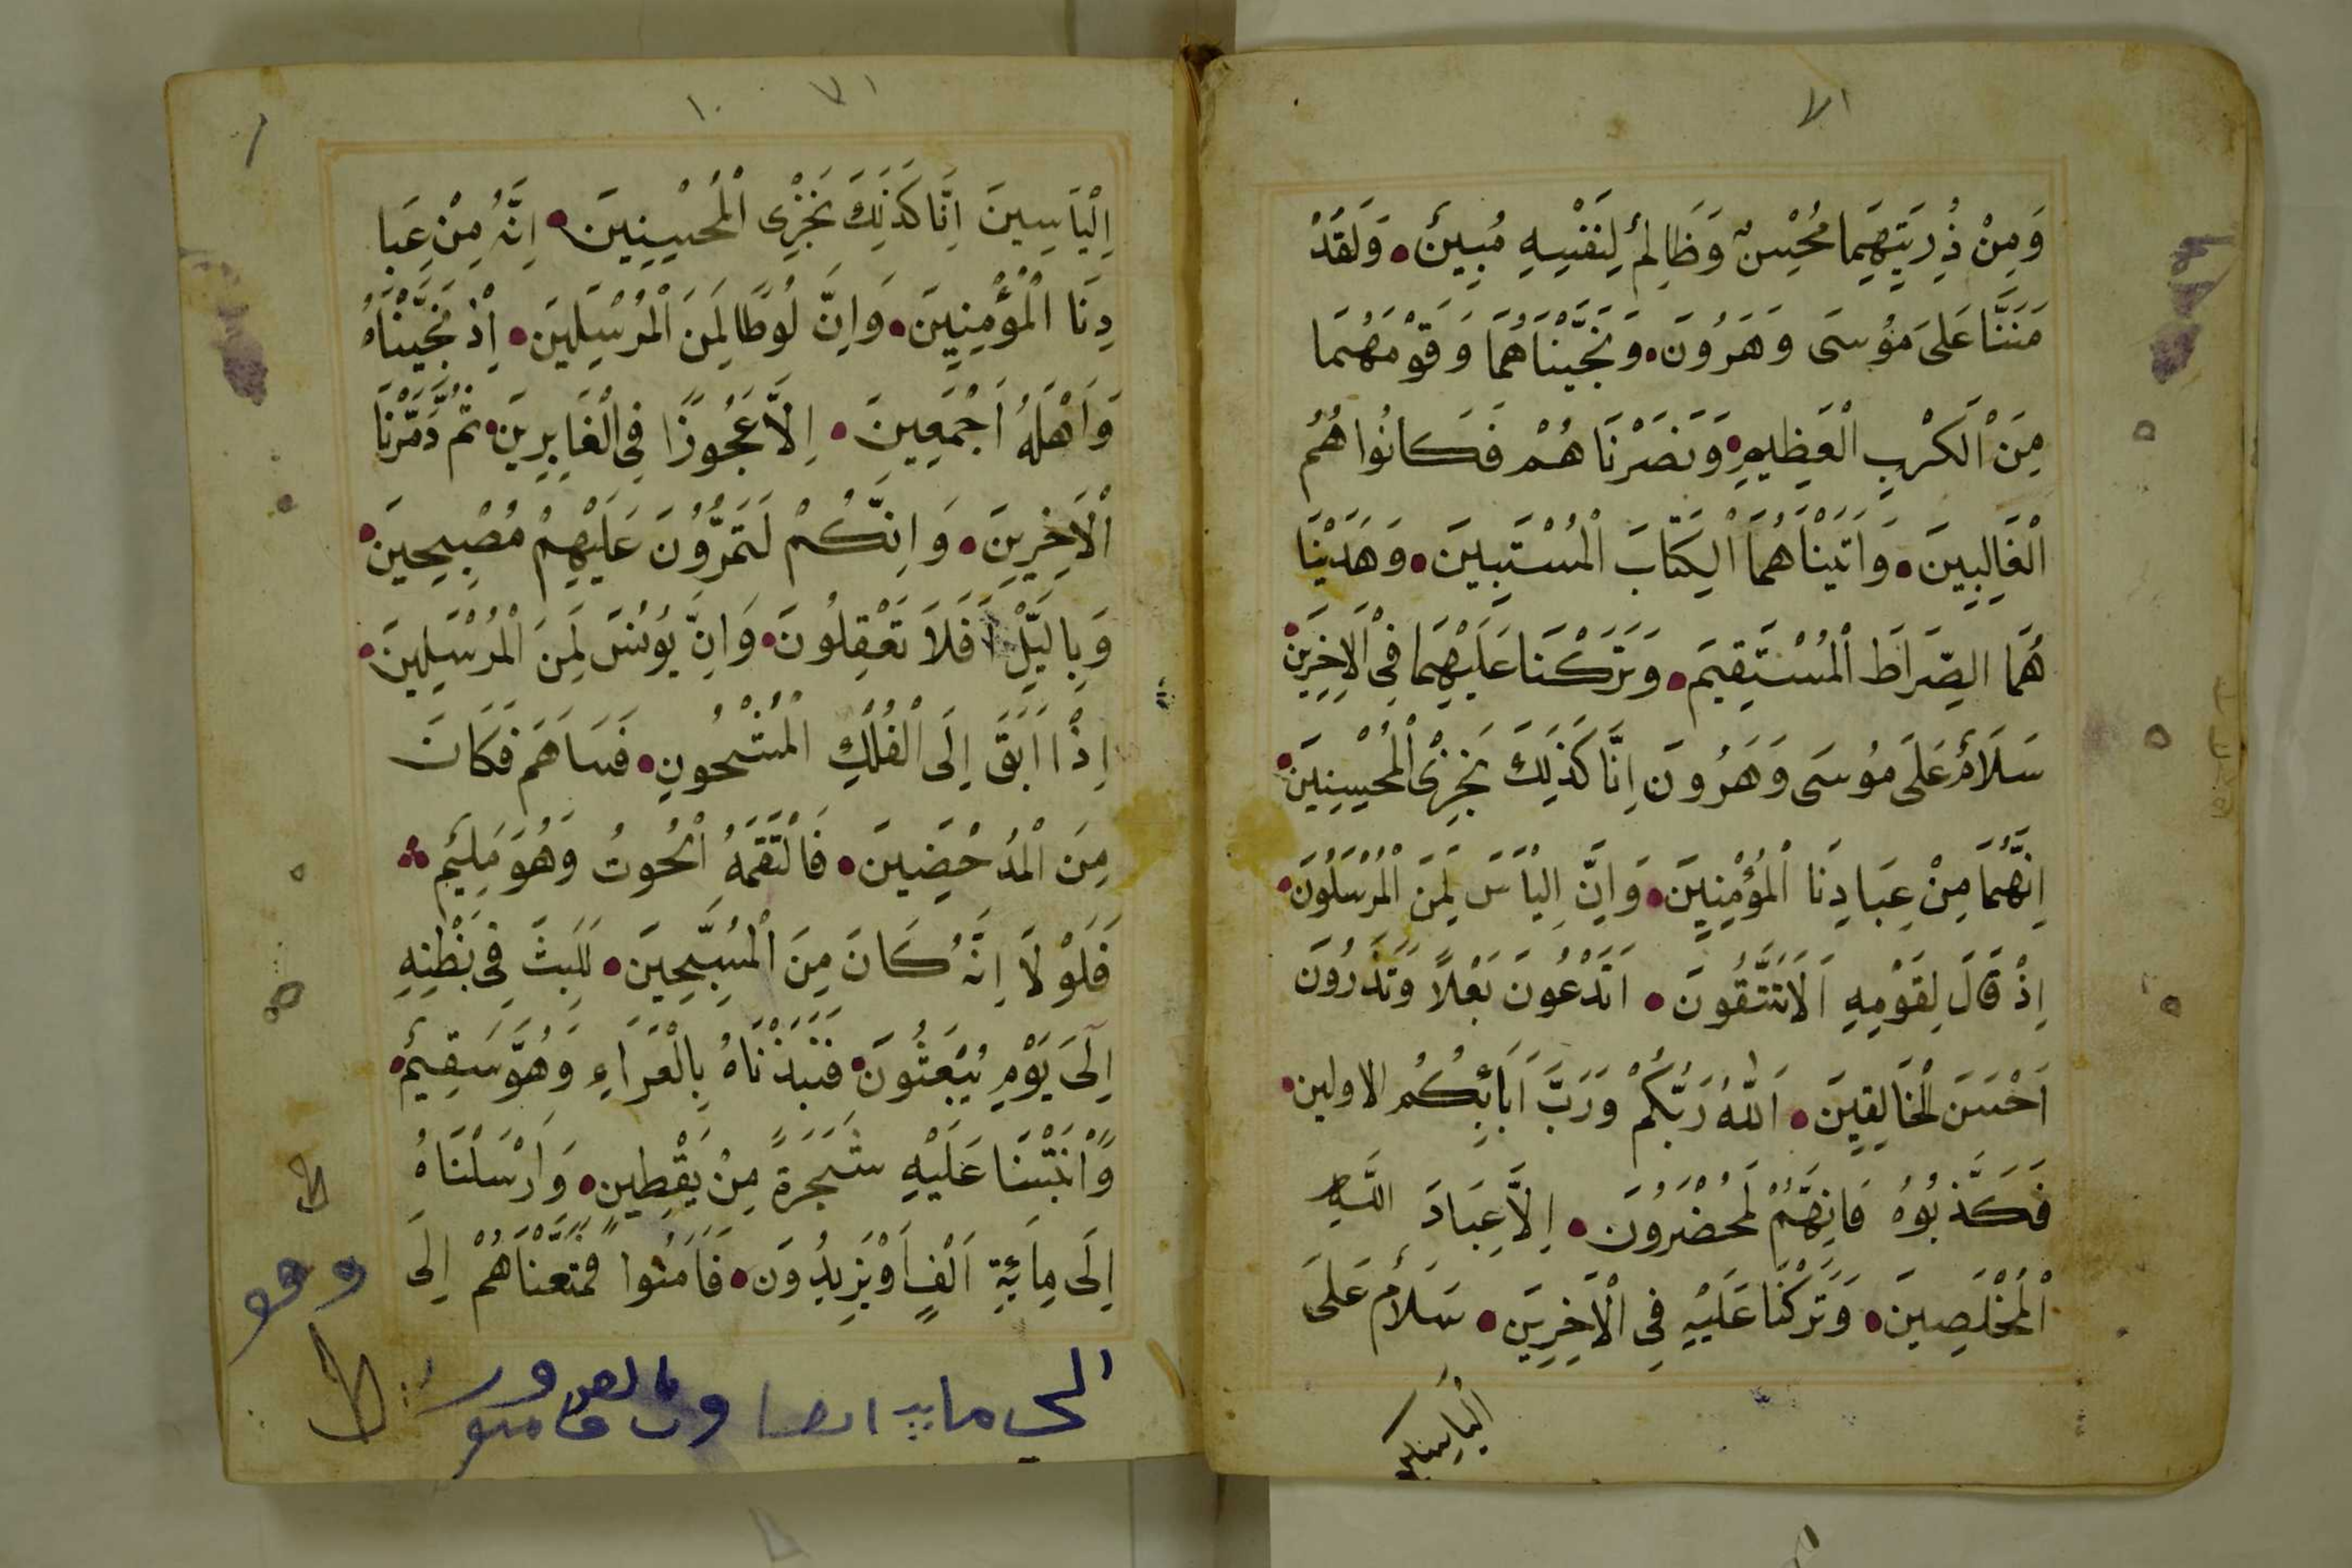 ٧١
وَمِنْ ذُرِيَتِهِمَا مُحْسِنٌ وَظَالِمٌ لِنَفْسِهِ مُبِينٌ وَلَقَدْ
مَنَنَّا عَلَى مُوسَى وَهَرُونَ وَنَجَّيْنَاهُمَا وَقَوْمَهُمَا
مِنَ الْكَرْبِ الْعَظِيمِ وَنَصَرْنَاهُمْ فَكَانُوا هُمُ
الْغَالِبِينَ وَاَتَيْنَاهُمَا الْكِتَابَ الْمُسْتَبِينَ وَهَدَيْنَا
هُمَا الصِّرَاطَ الْمُسْتَقِيمَ وَتَرَكْنَا عَلَيْهِمَا فِى الْاَخِرِينَ
سَلَامٌ عَلَى مُوسَى وَهَرُونَ اِنَّا كَذَلِكَ نَجْزِى الْمُحْسِنِينَ
اِنَّهُمَا مِنْ عِبَادِنَا الْمُؤْمِنِينَ وَاِنَّ اِلْيَاسَ لَمِنَ الْمُرْسَلُونَ
اِذْ قَالَ لِقَوْمِهِ اَلَا تَتَّقُونَ اَتَدْعُونَ بَعْلًا وَتَذَرُونَ
اَحْسَنَ الْخَالِقِينَ اَللّٰهُ رَبُّكُمْ وَرَبَّ اَبَائِكُمُ الاولين
فَكَذَّبُوهُ فَاِنَّهُمْ لَمُحْضَرُونَ اِلَّا عِبَادَ اللَّهِ
الْمُخْلَصِينَ وَتَرَكْنَا عَلَيْهِ فِى الْاَخِرِينَ سَلَامٌ عَلَى
٧١
١٠
اِلْيَاسِينَ اِنَّا كَذَلِكَ نَجْزِى الْمُحْسِنِينَ اِنَّهُ مِنْ عِبَا
دِنَا الْمُؤْمِنِينَ وَاِنَّ لُوطًا لَمِنَ الْمُرْسَلِينَ اِذْ نَجَّيْنَاهُ
وَاَهْلَهُ اَجْمَعِينَ اِلَّا عَجُوزًا فِى الْغَابِرِينَ ثُمَّ دَمَّرْنَا
الْاَخِرِينَ وَاِنَّكُمْ لَتَمُرُّونَ عَلَيْهِمْ مُصْبِحِينَ
وَبِاليَّلِ اَفَلَا تَعْقِلُونَ وَاِنَّ يُونُسَ لَمِنَ الْمُرْسَلِينَ
اِذْا اَبَقَ اِلَى الْفُلْكِ الْمَشْحُونِ فَسَاهَمَ فَكَانَ
مِنَ الْمُدْحَضِينَ فَالْتَقَمَهُ الْحُوتُ وَهُوَ مَلِيمٌ
فَلَوْلَا اِنَّهُ كَانَ مِنَ الْمُسَبِّحِينَ لَلَبِثَ فِى بَطْنِهِ
اِلَى يَوْمِ يُبْعَثُونَ فَنَبَذْنَاهُ بِالْعَرَاءِ وَهُوَ سَقِيمٌ
وَاَنْبَتْنَا عَلَيْهِ شَجَرَةً مِنْ يَقْطِينٍ وَاَرْسَلْنَاهُ
اِلَى مِائَةِ اَلْفٍ اَوْ يَزِيدُونَ فَاَمَنُوا فَمَتَّعْنَاهُمْ اِلَى
وهو